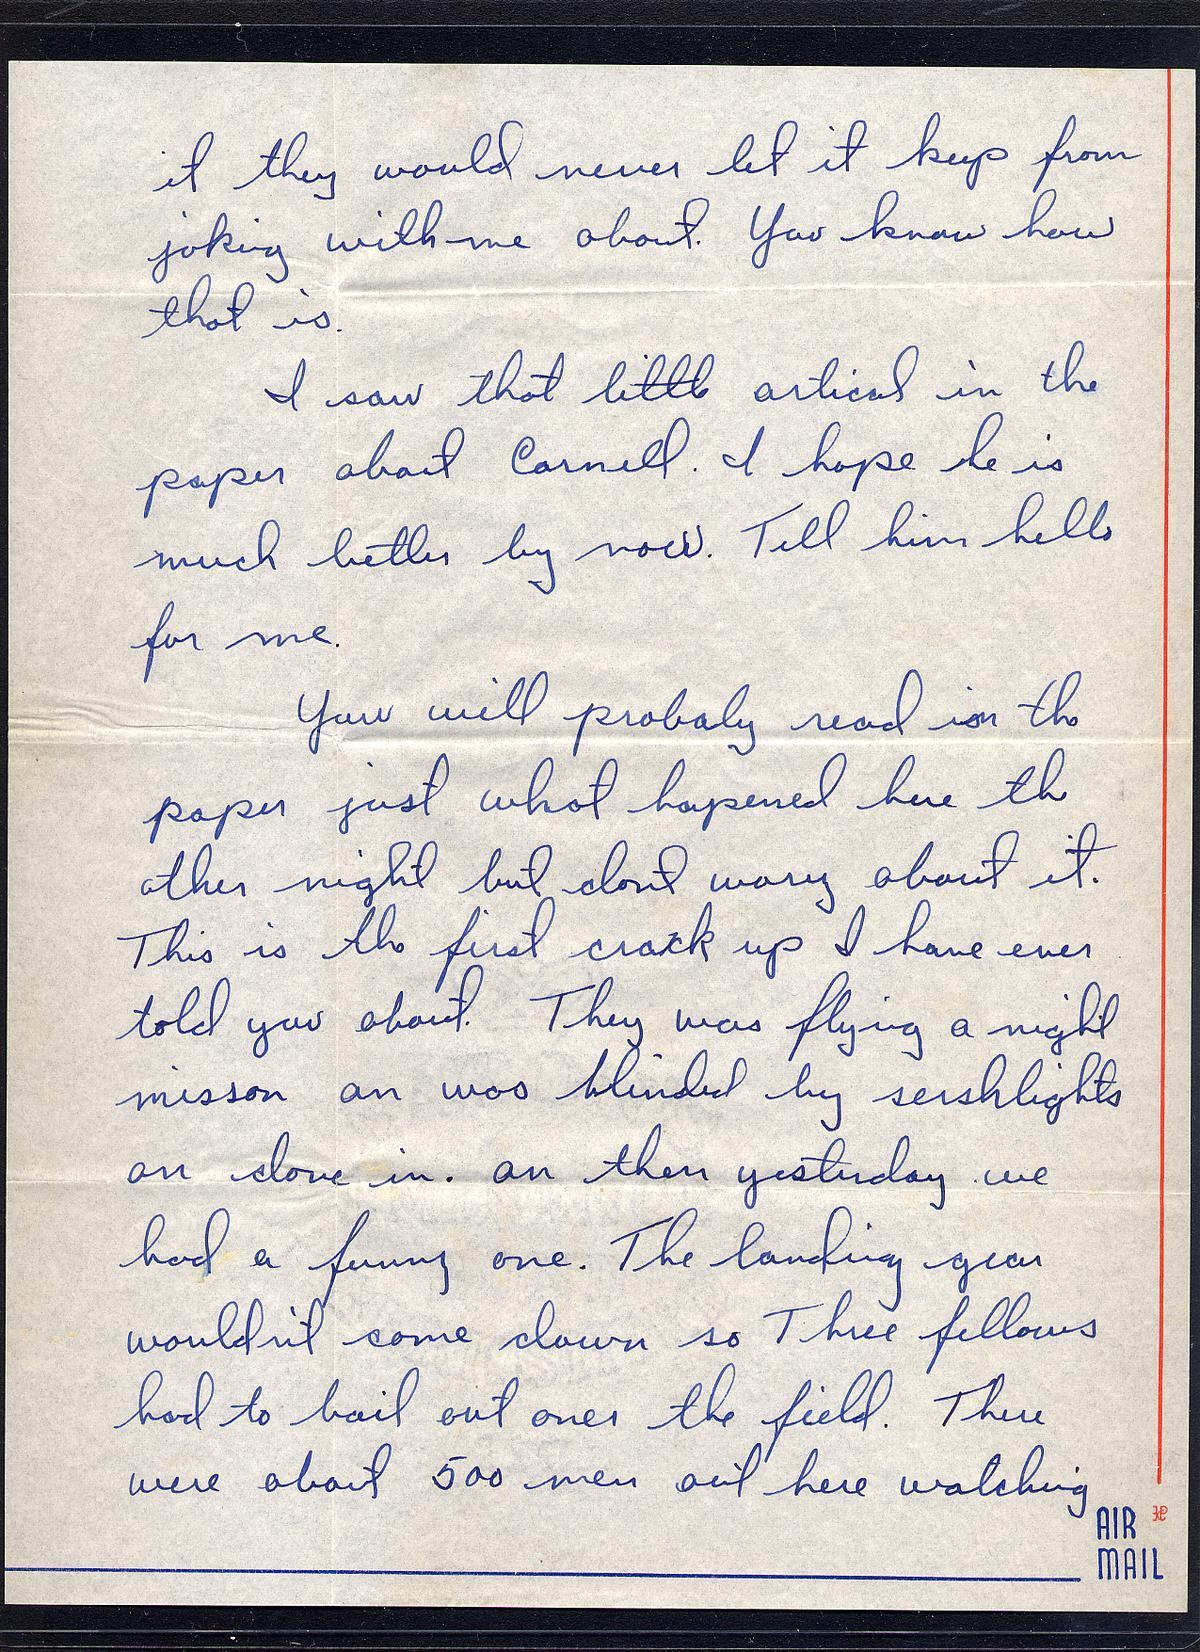 it they would never let it keep from
joking with me about. You know how
that is.
I saw that little artical in the
paper about Cornell. I hope he is
much better by now. Tell him hello
for me.
You will probaly read in the
paper just what hapened here the
other night but dont worry about it.
This is the first crack up I have ever
told you about. They was flying a night
misson an was blinded by sershlights
an dove in. an then yesterday we
had a funny one. The landing gear
wouldn't come down so Three fellows
had to bail out over the field. There
were about 500 men out here watching
AIR
MAIL